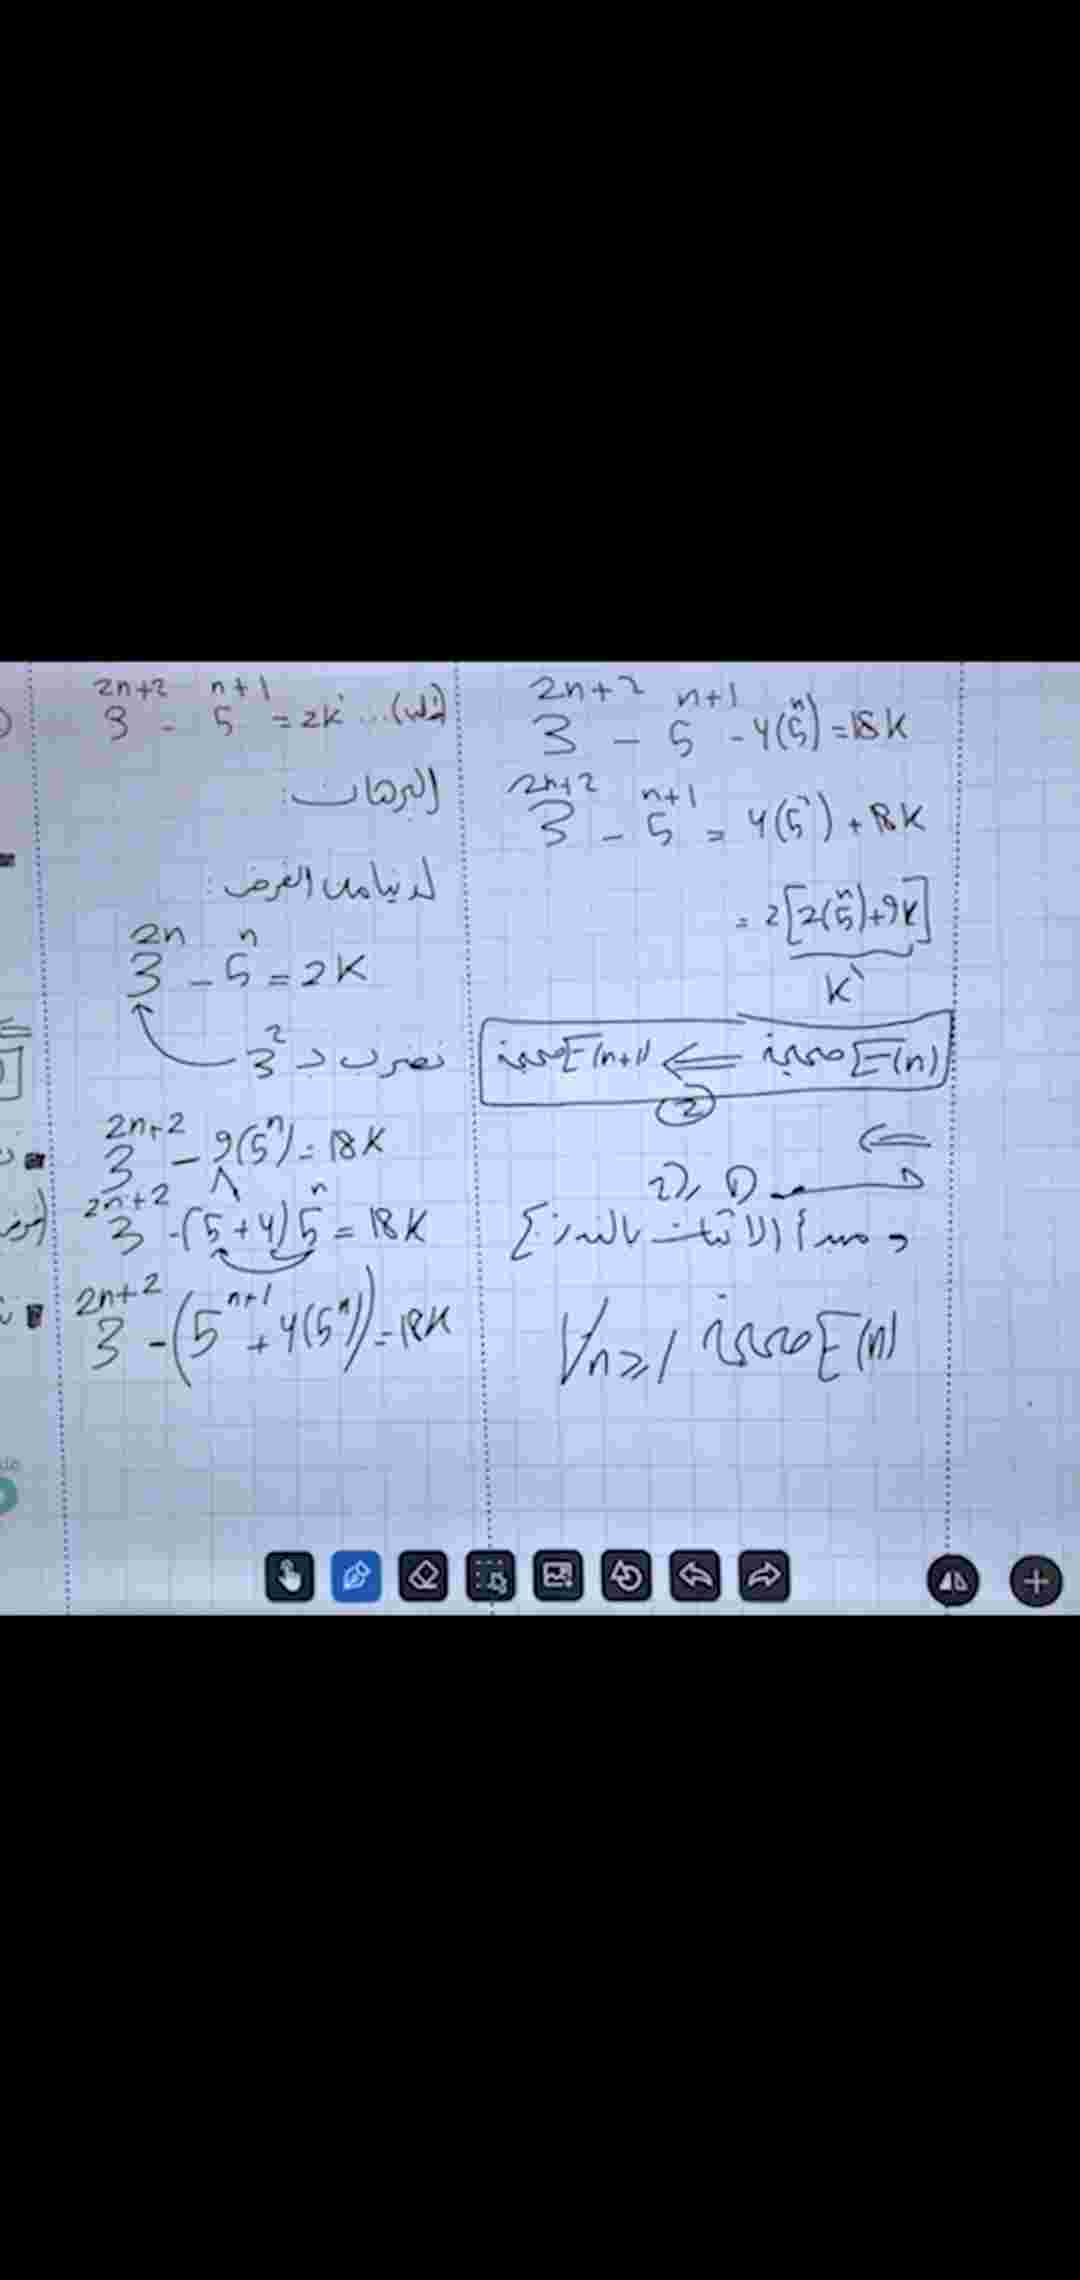 3^{2n+2} - 5^{n+1} = 2k' ... (طلب)
البرهان:
لدينا من الفرض:
3^{2n} - 5^n = 2k
نضرب بـ 3^2
3^{2n+2} - 9(5^n) = 18k
3^{2n+2} - (5+4)5^n = 18k
3^{2n+2} - (5^{n+1} + 4(5^n)) = 18k
3^{2n+2} - 5^{n+1} - 4(5^n) = 18k
3^{2n+2} - 5^{n+1} = 4(5^n) + 18k
= 2[2(5^n)+9k]
k'
E(n) صحيحة ⇒ E(n+1) صحيحة
②
⇐
من ① و ②
و مبدأ الاثبات بالتدريج
E(n) صحيحة ∀n ≥ 1